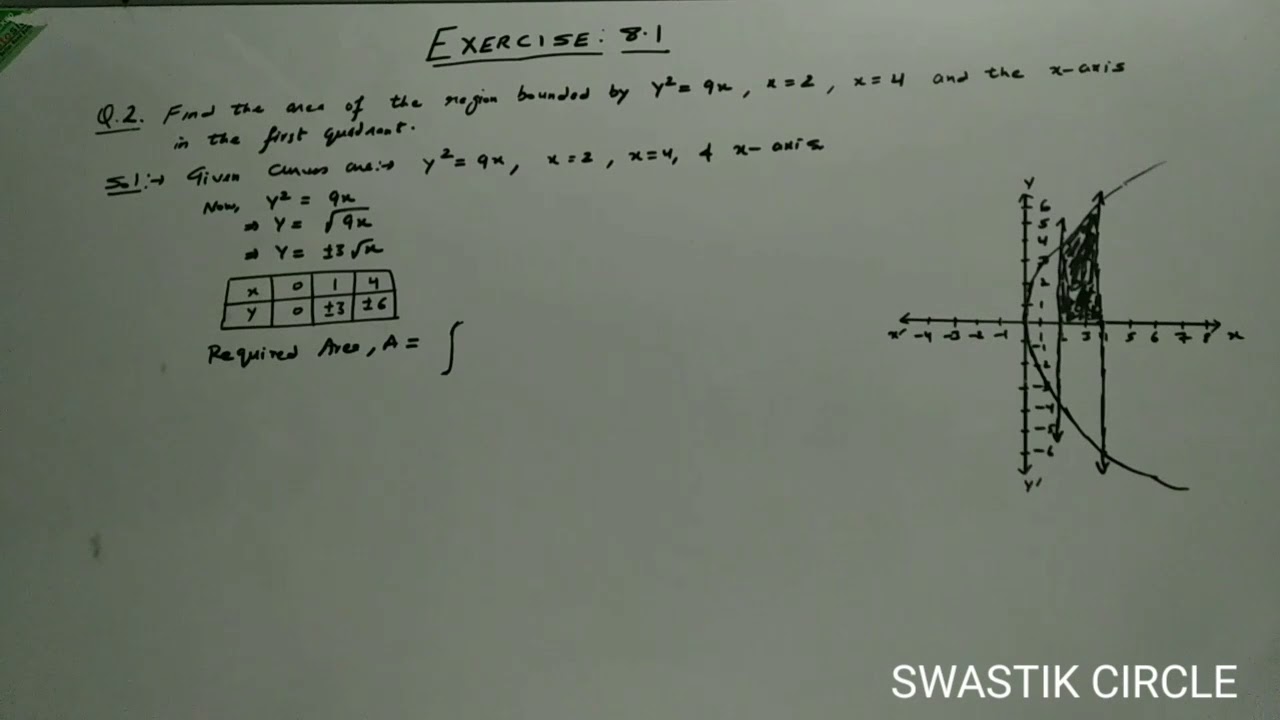 EXERCISE: 8.1
Q.2. Find the area of the region bounded by y² = 9x, x = 2, x = 4 and the x-axis
in the first quadrant.
Sol:→ Given curves are:→ y² = 9x, x = 2, x = 4, & x-axis
Now, y² = 9x
⇒ y = √9x
⇒ y = ±3√x
x 0 1 4
y 0 ±3 ±6
Required Area, A = ∫
Y
6
5
4
3
2
1
x' -4 -3 -2 -1 3 5 6 7 8 x
-1
-2
-3
-4
-5
-6
Y'
SWASTIK CIRCLE